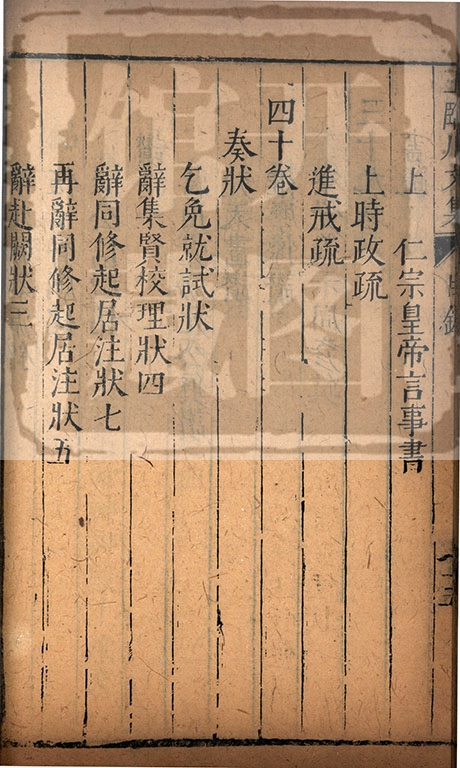 王臨川文集 目錄
上 仁宗皇帝言事書
上時政疏
進戒疏
四十卷
奏狀
乞免就試狀
辭集賢校理狀四
辭同修起居注狀七
再辭同修起居注狀五
辭赴闕狀三